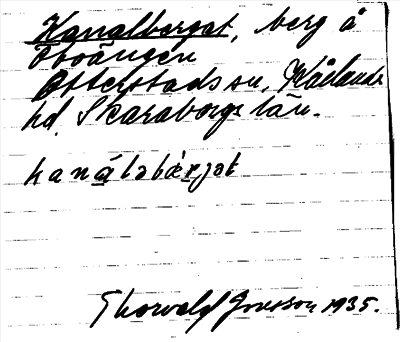 Kanalberget, berg å
Otterstads sn, Kållands
hd. Skaraborgs län.
kanálsbærjet
Thorvald Jonsson 1935.